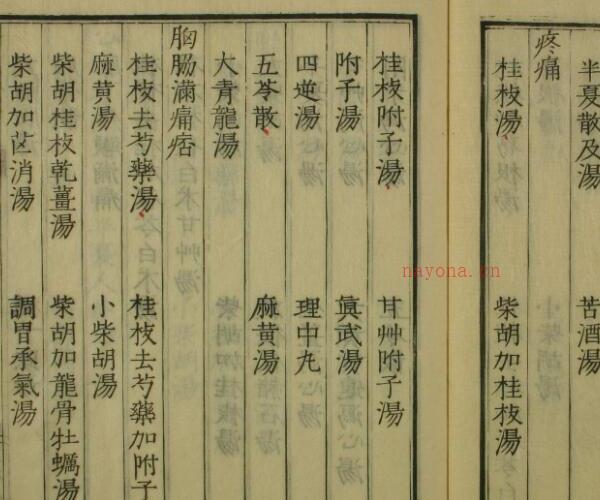 半夏散及湯
苦酒湯
疼痛
桂枝湯
柴胡加桂枝湯
桂枝附子湯
甘艸附子湯
附子湯
眞武湯
四逆湯
理中丸
五苓散
麻黄湯
大青龍湯
胸脇滿痛痞
桂枝去芍藥湯
桂枝去芍藥加附子
麻黄湯
小柴胡湯
柴胡桂枝乾薑湯
柴胡加龍骨牡蠣湯
柴胡加芒消湯
調胃承氣湯
nayona.cn